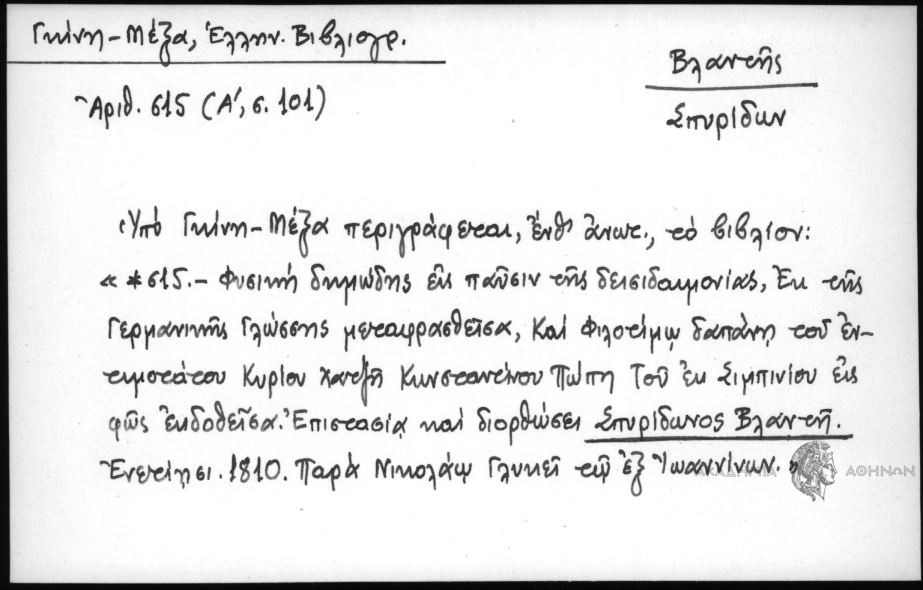 Γκίνη-Μέξα, Ἑλλην. Βιβλιογρ.
Ἀριθ. 615 (Α', σ. 101)
Βλαντῆς
Σπυρίδων
Ὑπό Γκίνη-Μέξα περιγράφεται, ἔνθ' ἄνωτ., τό βιβλίον:
« *615.- Φυσική δημώδης εἰς παῦσιν τῆς δεισιδαιμονίας, Ἐκ τῆς
Γερμανικῆς Γλώσσης μεταφρασθεῖσα, Καί φιλοτίμῳ δαπάνῃ τοῦ ἐν-
τιμοτάτου Κυρίου Χατζῆ Κωνσταντίνου Πώπη Τοῦ ἐκ Σιμπινίου εἰς
φῶς ἐκδοθεῖσα. Ἐπιστασίᾳ καί διορθώσει Σπυρίδωνος Βλαντῆ.
Ἐνετίῃσι. 1810. Παρά Νικολάῳ Γλυκεῖ τῷ ἐξ Ἰωαννίνων. »
ΑΚΑΔΗΜΙΑ ΑΘΗΝΩΝ